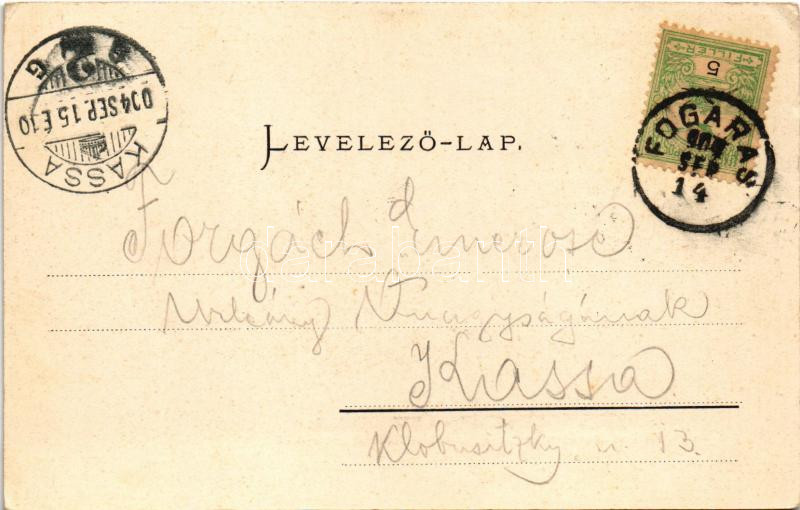 LEVELEZŐ-LAP.
FILLÉR
5
FOGARAS
904
SEP
14
KASSA
904 SEP 15 É 10
G
Forgách Emerose
Úrleány Őnagyságának
Kassa
Klobusitzky u. 13.